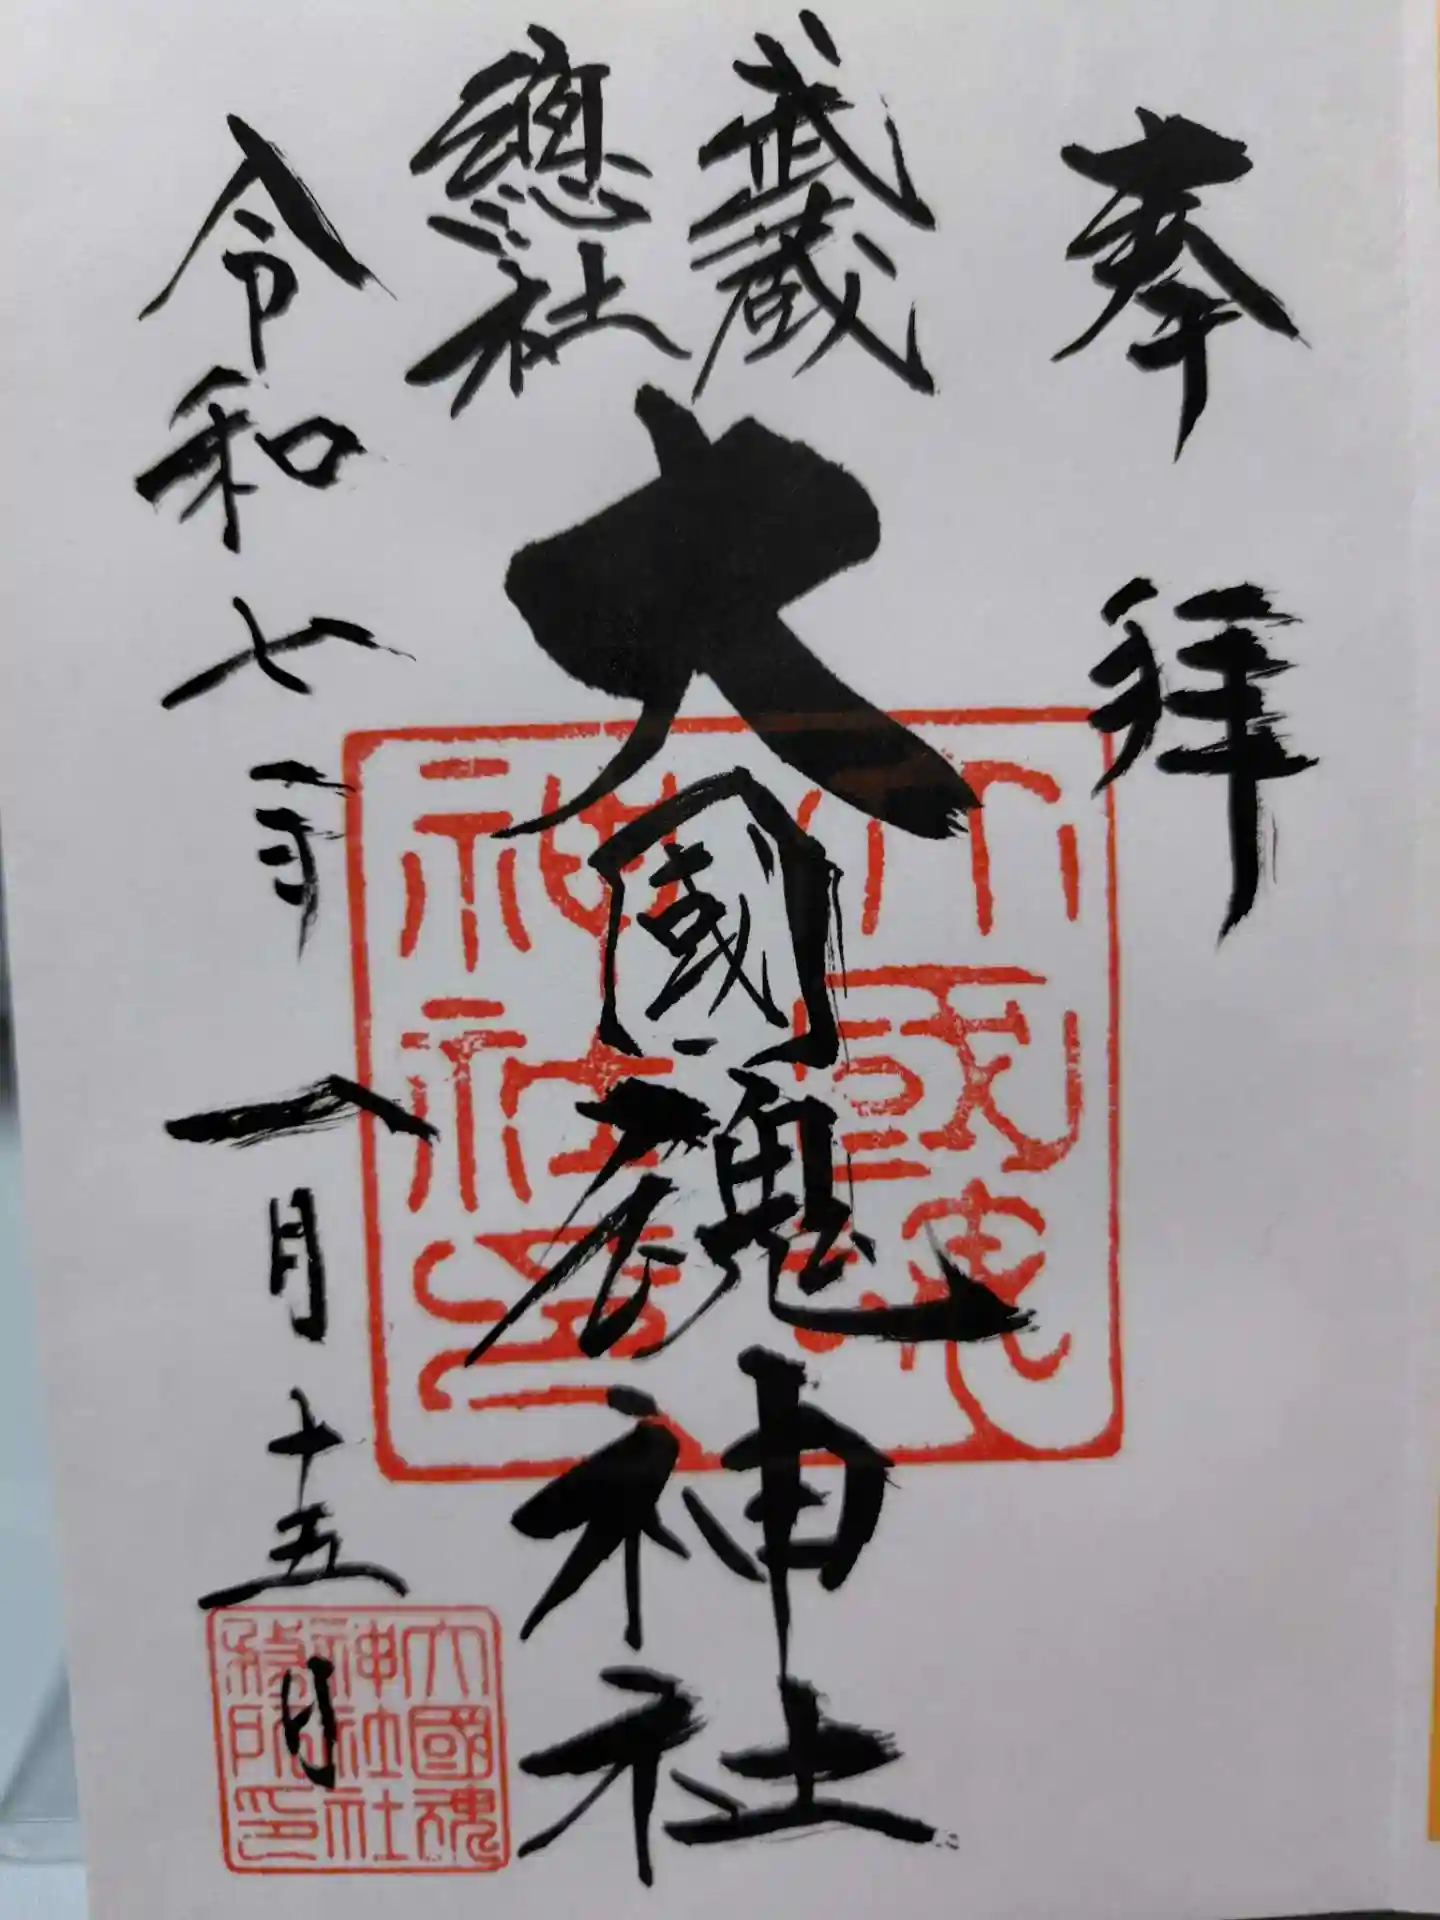 奉拝
武蔵
總社
大國魂神社
令和七年八月十五日
大國魂
神社印
大國魂
神社社
務所印